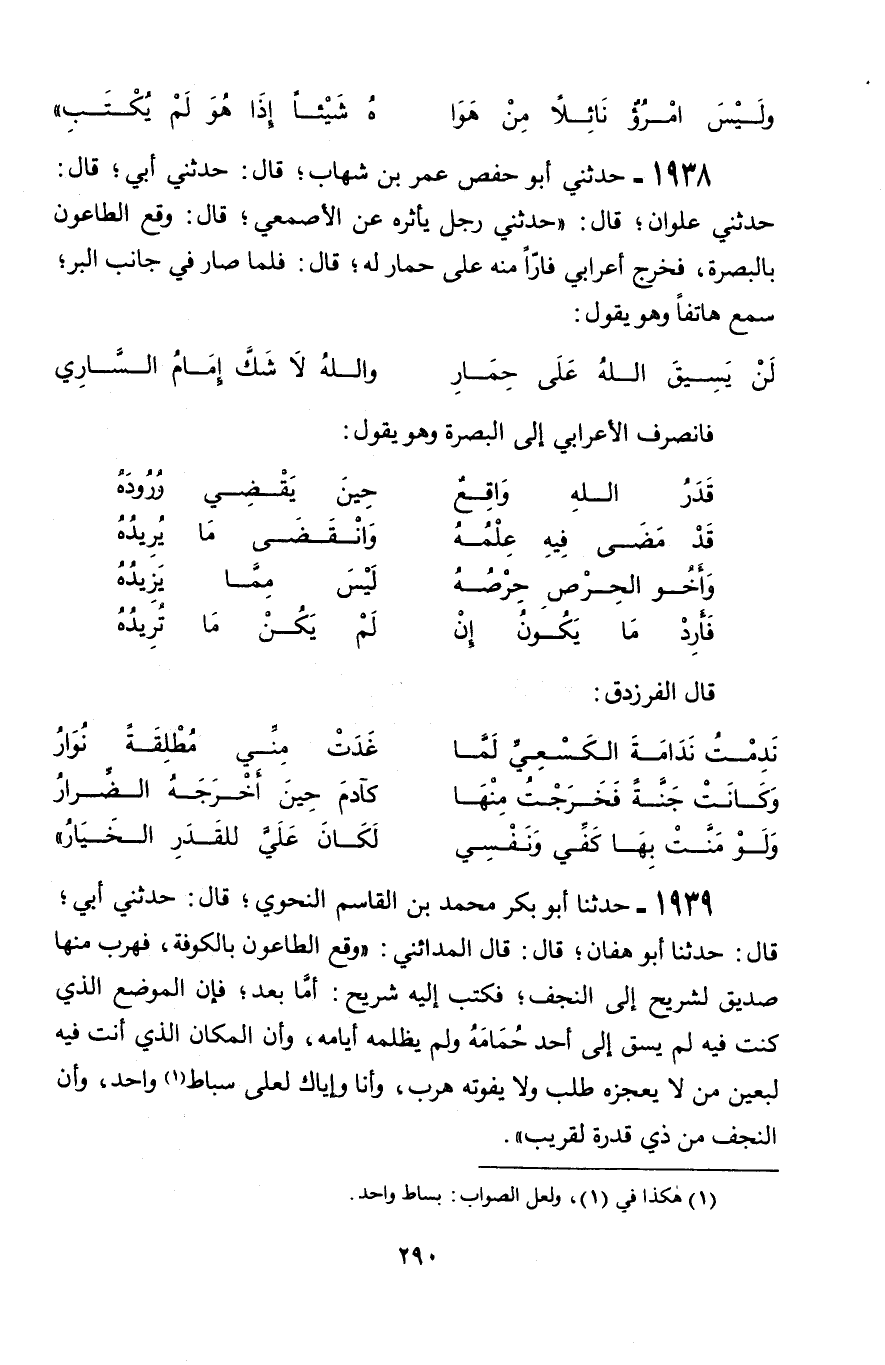 ولَـيْـسَ امْـرُؤٌ نَائِـلًا مِـنْ هَوَا    هُ شَيْئـاً إِذَا هُوَ لَمْ يُكْـتَـبِ»
١٩٣٨ - حدثني أبو حفص عمر بن شهاب؛ قال: حدثني أبي؛ قال:
حدثني علوان؛ قال: «حدثني رجل يأثره عن الأصمعي؛ قال: وقع الطاعون
بالبصرة، فخرج أعرابي فارّاً منه على حمار له؛ قال: فلما صار في جانب البر؛
سمع هاتفاً وهو يقول:
لَنْ يَسِـيقَ الـلهُ عَلَى حِمَـارِ    والـلهُ لَا شَكَّ إِمَـامُ الـسَّـارِي
فانصرف الأعرابي إلى البصرة وهو يقول:
قَدَرُ الـلهِ وَاقِـعٌ    حِينَ يَقْـضِـي وُرُودَهُ
قَدْ مَضَـى فِيهِ عِلْمُـهُ    وَانْـقَـضَـى مَا يُرِيدُهُ
وَأَخُـو الحِـرْصِ حِرْصُـهُ    لَيْسَ مِمَّـا يَزِيدُهُ
فَأَرِدْ مَا يَكُـونُ إِنْ    لَمْ يَكُـنْ مَا تُرِيدُهُ
قال الفرزدق:
نَدِمْـتُ نَدَامَـةَ الـكَـسْـعِـيِّ لَمَّـا    غَدَتْ مِنِّـي مُطْلِقَـةً نَوَارُ
وَكَـانَـتْ جَنَّـةً فَخَـرَجْـتُ مِنْهَـا    كآدمَ حِينَ أَخْـرَجَـهُ الـضِّـرارُ
وَلَـوْ مَنَّـتْ بِهَـا كَفِّي وَنَفْـسِـي    لَكَـانَ عَلَيَّ للقَـدَرِ الـخَـيَارُ»
١٩٣٩ - حدثنا أبو بكر محمد بن القاسم النحوي؛ قال: حدثني أبي؛
قال: حدثنا أبو هفان؛ قال: قال المدائني: «وقع الطاعون بالكوفة، فهرب منها
صديق لشريح إلى النجف؛ فكتب إليه شريح: أمَّا بعد؛ فإن الموضع الذي
كنت فيه لم يسق إلى أحد حُمَامَهُ ولم يظلمه أيامه، وأن المكان الذي أنت فيه
لبعين من لا يعجزه طلب ولا يفوته هرب، وأنا وإياك لعلى سباط(١) واحد، وأن
النجف من ذي قدرة لقريب».
(١) هكذا في (١)، ولعل الصواب: بساط واحد.
٢٩٠